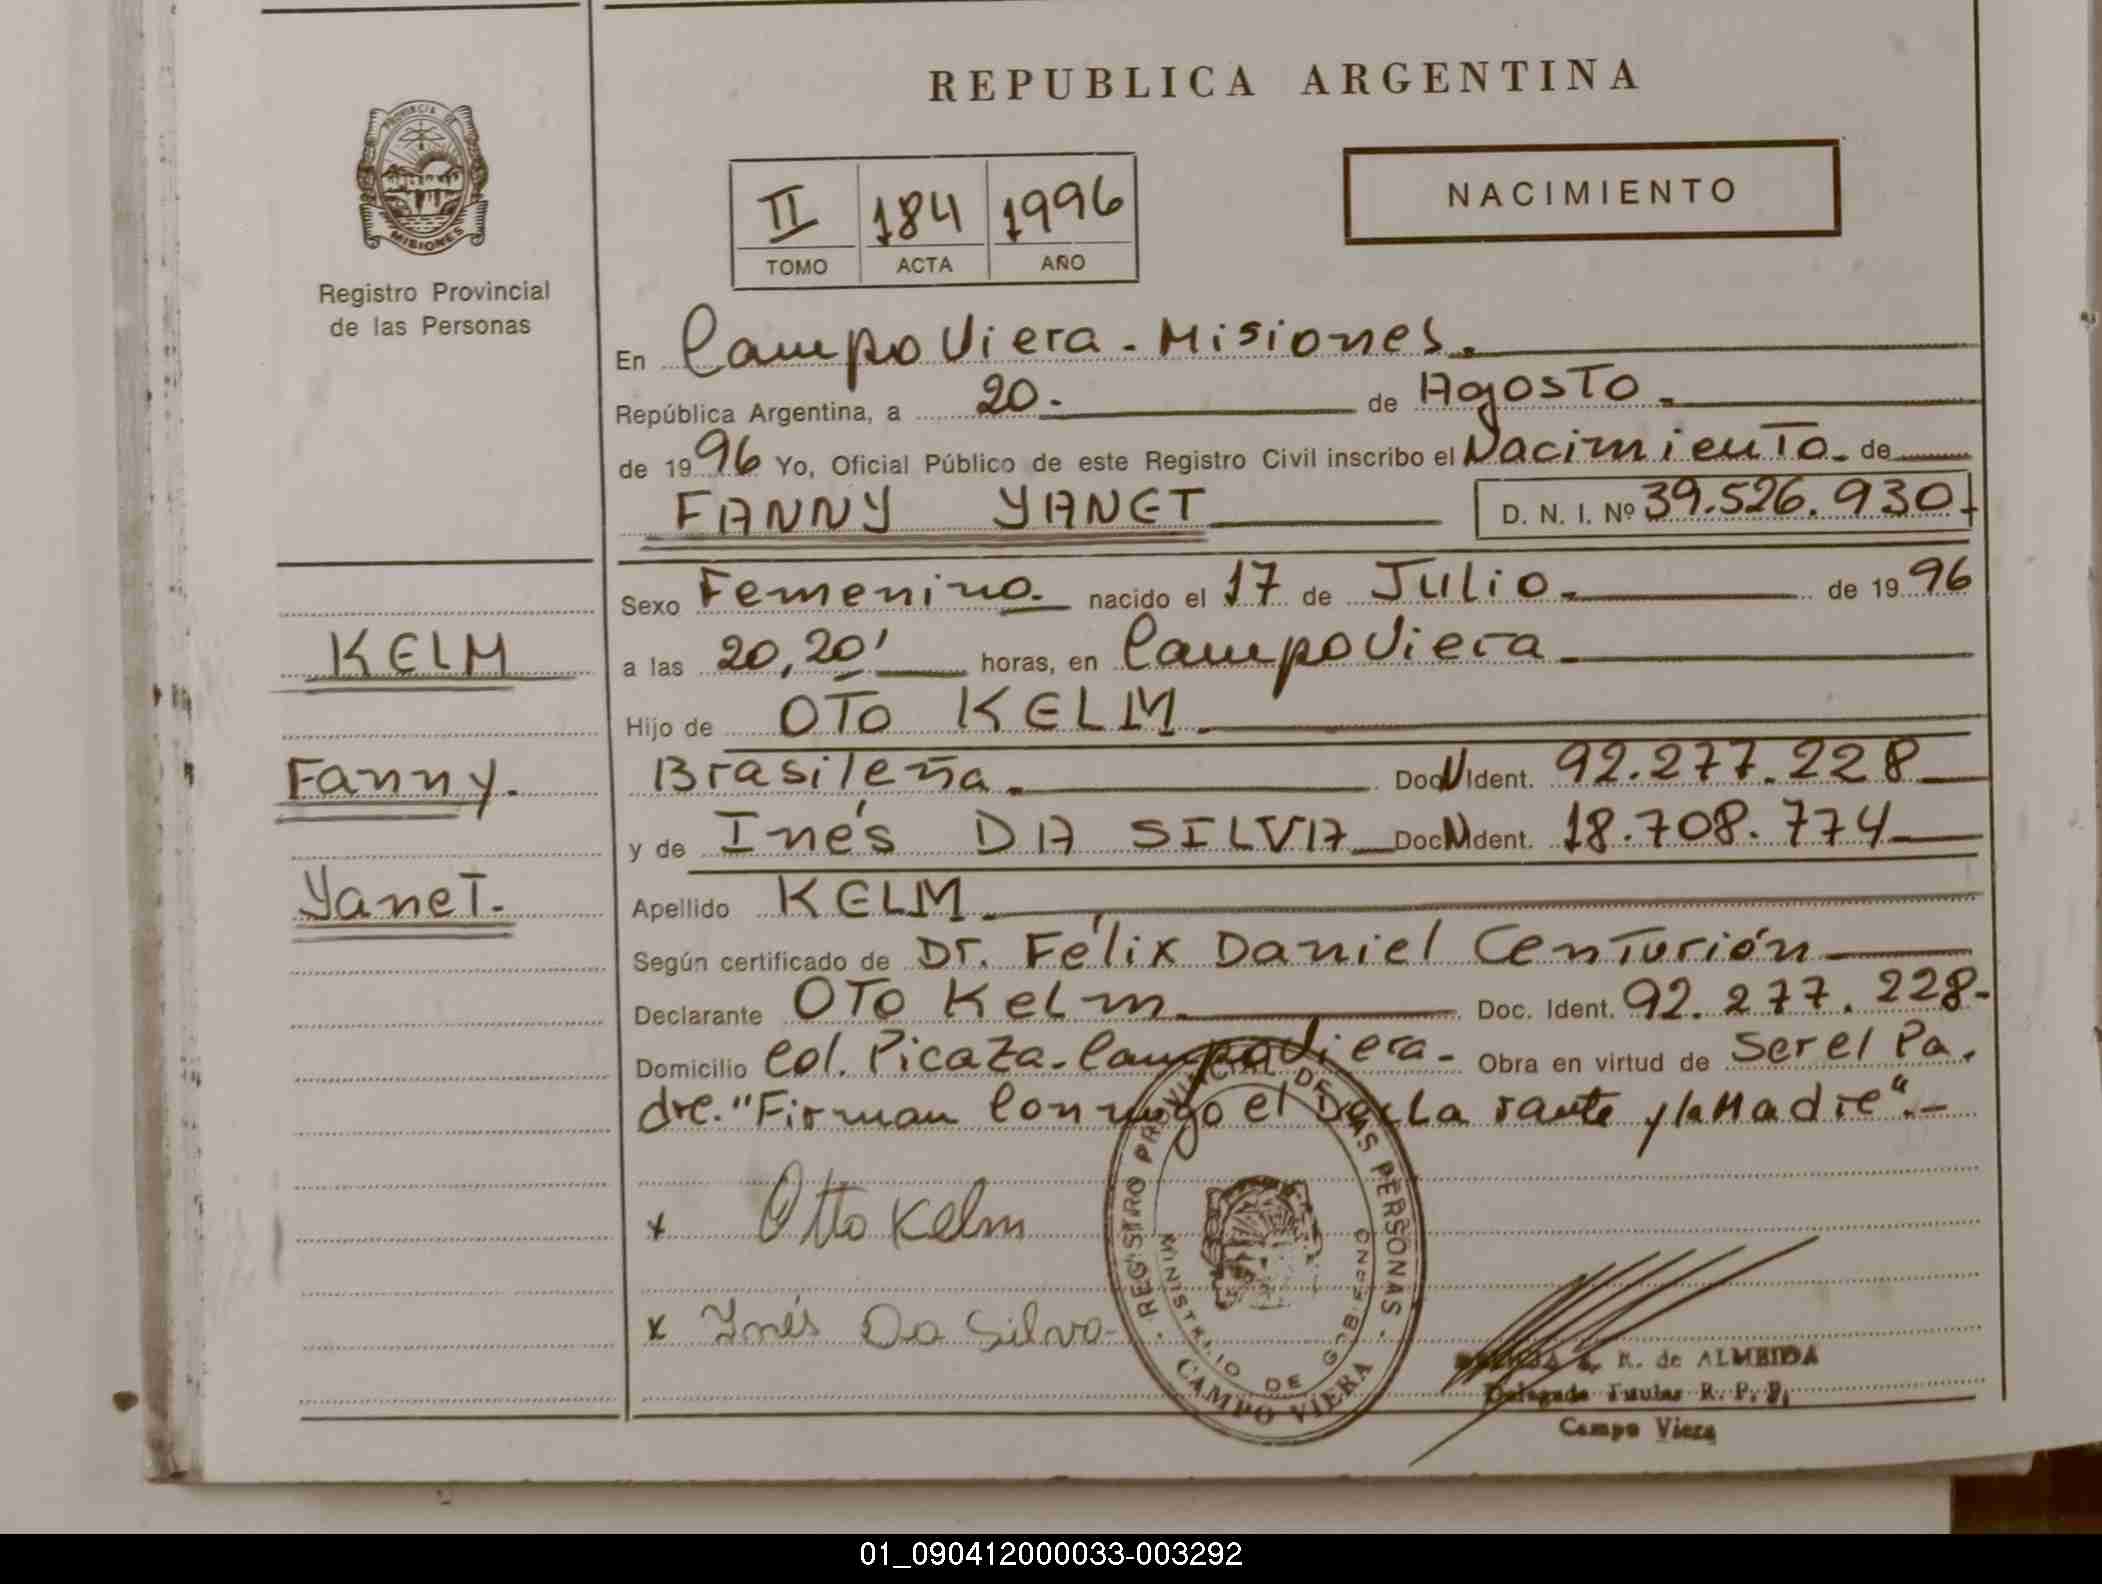 REPUBLICA ARGENTINA
PROVINCIA DE
MISIONES
Registro Provincial
de las Personas
II 184 1996
TOMO ACTA AÑO
NACIMIENTO
En Campo Viera - Misiones.
República Argentina, a 20. de Agosto.
de 1996 Yo, Oficial Público de este Registro Civil inscribo el Nacimiento. de
FANNY YANET D. N. I. Nº 39.526.930
Sexo Femenino. nacido el 17 de Julio. de 1996
KELM
a las 20,20' horas, en Campo Viera
Hijo de OTO KELM
Fanny.
Brasileña. Doc. Ident. 92.277.228
y de Inés DA SILVA Doc. Ident. 18.708.774
Yanet.
Apellido KELM
Según certificado de Dr. Félix Daniel Centurión
Declarante OTO Kelm. Doc. Ident. 92.277.228-
Domicilio Col. Picaza - Campo Viera - Obra en virtud de Ser el Pa.
dre. "Firman Conmigo el Decla rante y la Madre".-
x Otto Kelm
x Inés Da Silva
REGISTRO PROVINCIAL DE LAS PERSONAS
MINISTERIO DE GOBIERNO
CAMPO VIERA
R. de ALMEIDA
Delegada Titular R. P. P.
Campo Viera
01_090412000033-003292